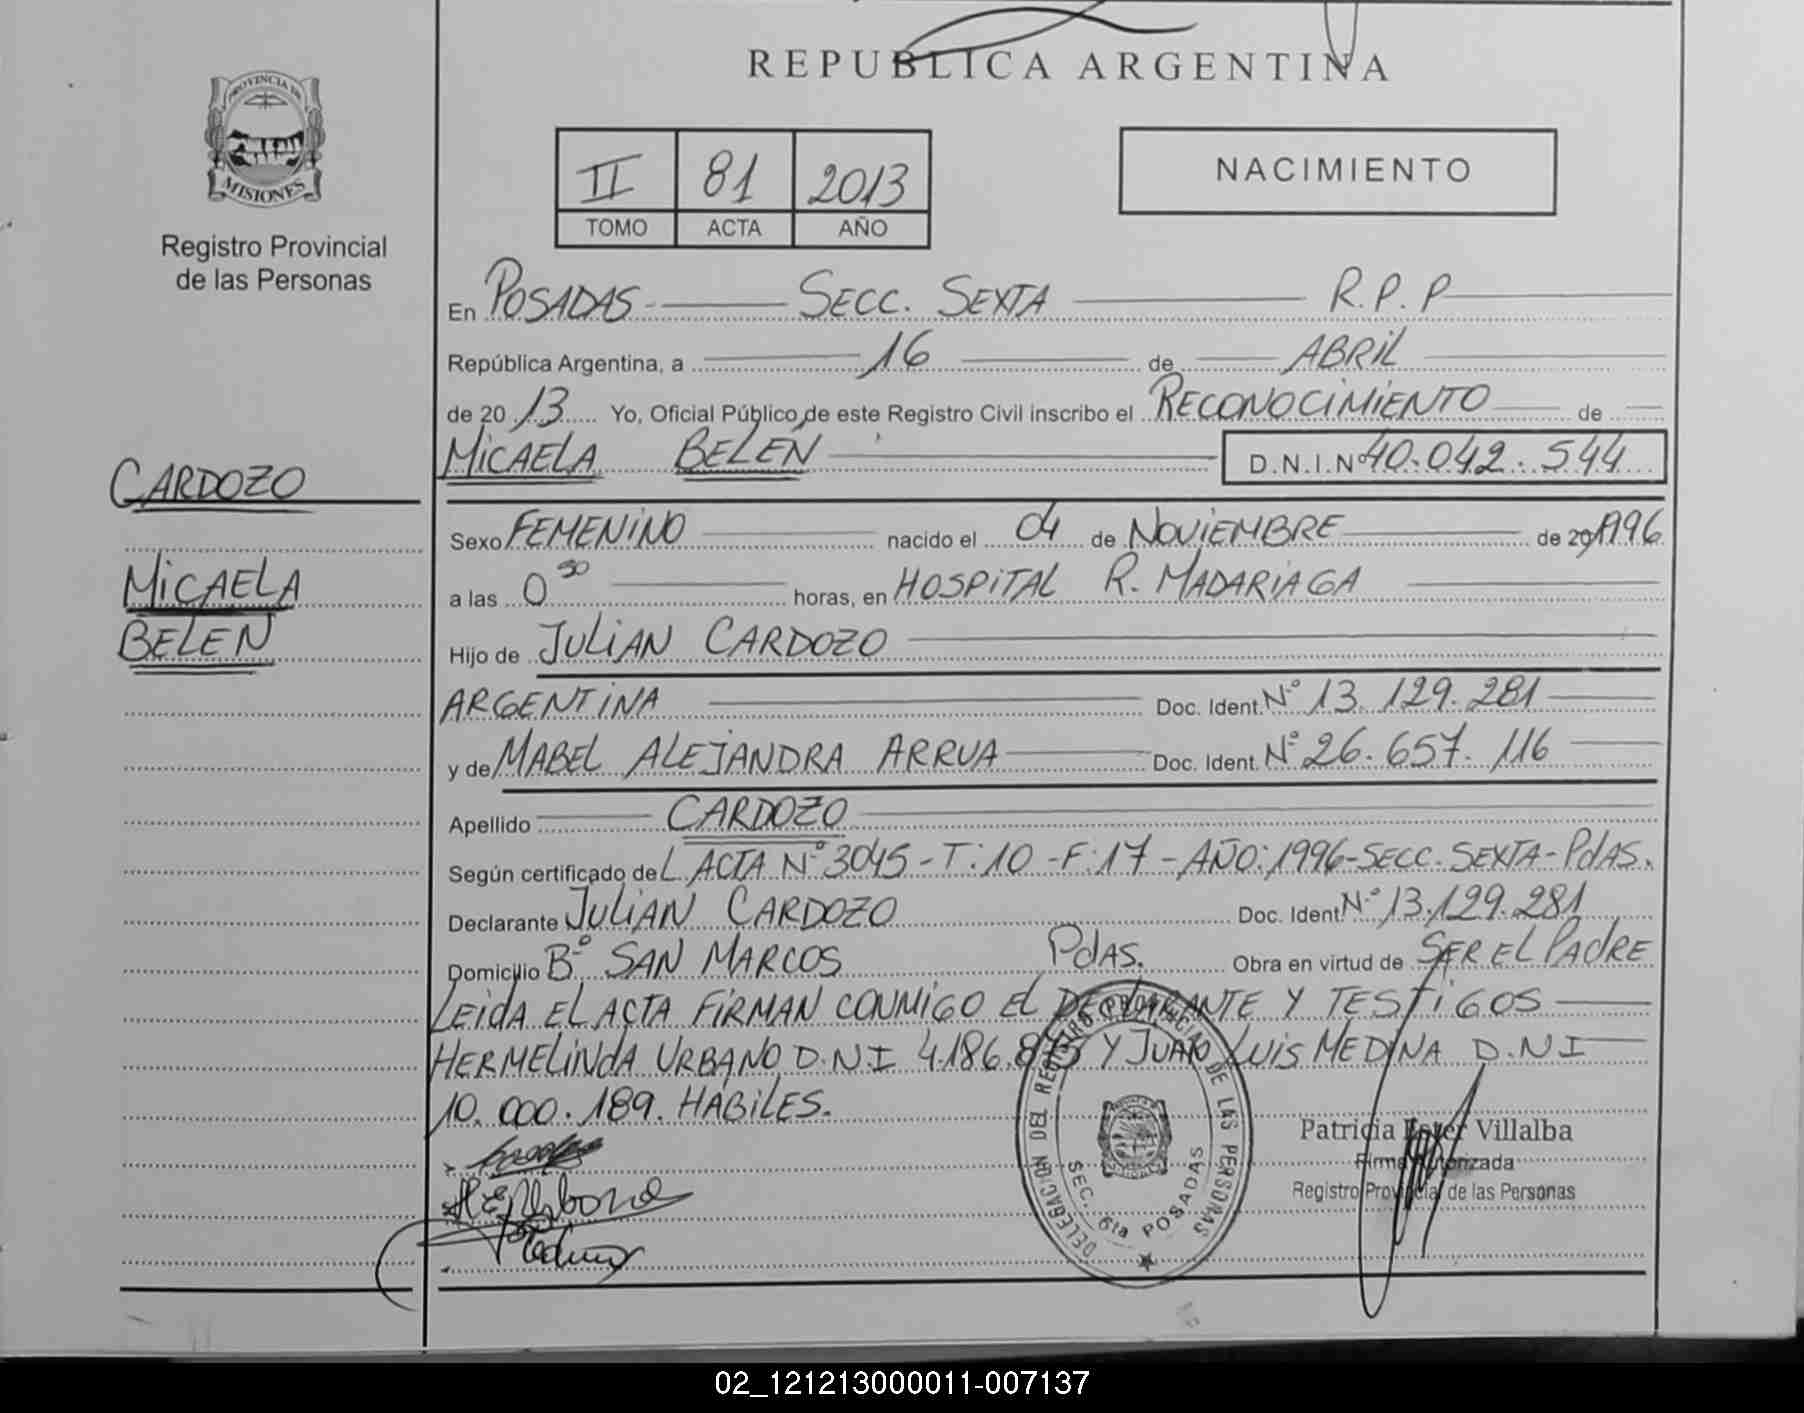 REPUBLICA ARGENTINA
PROVINCIA DE
MISIONES
Registro Provincial
de las Personas
II 81 2013
TOMO ACTA AÑO
NACIMIENTO
En POSADAS - SECC. SEXTA R.P.P
República Argentina, a 16 de ABRIL
de 20 13 Yo, Oficial Público de este Registro Civil inscribo el RECONOCIMIENTO de
MICAELA BELÉN D.N.I.Nº 40.042.544
CARDOZO
MICAELA
BELEN
Sexo FEMENINO nacido el 04 de NOVIEMBRE de 20 1996
a las 0 30 horas, en HOSPITAL R. MADARIAGA
Hijo de JULIAN CARDOZO
ARGENTINA Doc. Ident. Nº 13.129.281
y de MABEL ALEJANDRA ARRUA Doc. Ident. Nº 26.657.116
Apellido CARDOZO
Según certificado de L ACTA Nº 3045 - T:10 - F:17 - AÑO:1996 - SECC. SEXTA - PdAS.
Declarante JULIAN CARDOZO Doc. Ident. Nº 13.129.281
Domicilio Bº SAN MARCOS PdAS. Obra en virtud de SER EL PADRE
LEIDA EL ACTA FIRMAN CONMIGO EL DECLARANTE Y TESTIGOS
HERMELINDA URBANO D.N.I 4.186.8 Y JUAN LUIS MEDINA D.N.I
10.000.189. HÁBILES.
DELEGACION DEL REGISTRO PROVINCIAL DE LAS PERSONAS
SEC. 6ta POSADAS
Patricia Ester Villalba
Firma Autorizada
Registro Provincial de las Personas
02_121213000011-007137